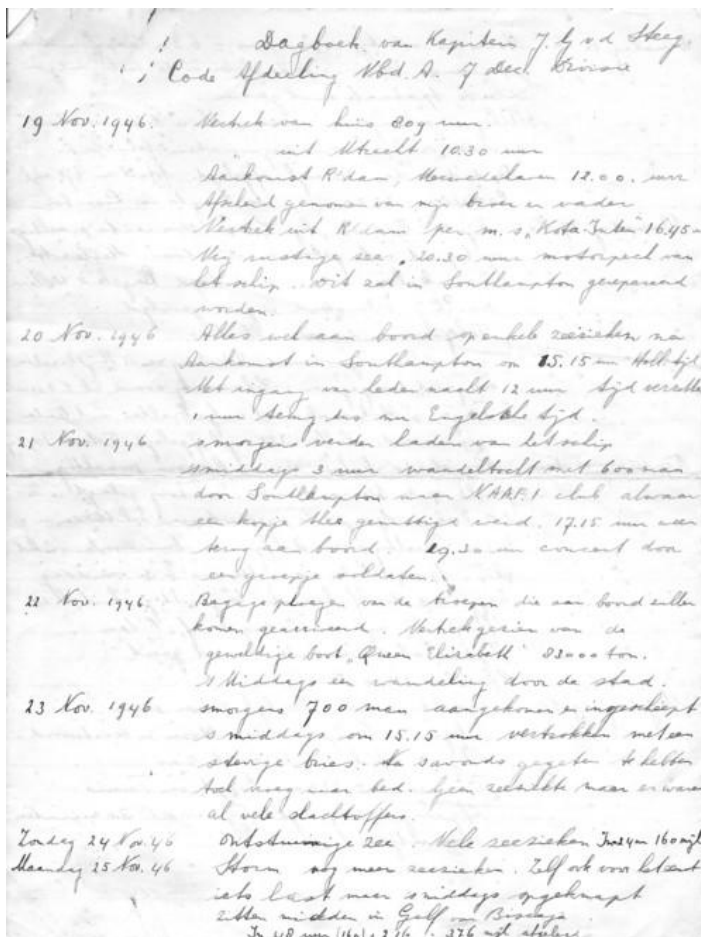 Dagboek van Kapitein J. G. v d Steeg
Code Afdeeling Vbd. A. 7 Dec. Divisie
19 Nov. 1946. Vertrek van huis 809 uur.
uit Utrecht 10.30 uur
Aankomst R'dam, Merwedehaven 12.00. uur
Afscheid genomen van mijn broer en vader
Vertrek uit R'dam per m.s. "Kota-Inten" 16.45
matige zee. 20.30 uur motorpech van
het schip. Dit zal in Southampton gerepareerd
worden.
20 Nov. 1946 Alles wel aan boord op enkele zeezieken na
Aankomst in Southampton om 15.15 uur Holl. tijd
Met ingang van heden nacht 12 uur tijd verzetten
1 uur terug dus nu Engelsche tijd.
21 Nov. 1946 smorgens verder laden van het schip
smiddags 3 uur wandeltocht met 600 man
door Southampton naar N.A.A.F.I club alwaar
een kopje thee genuttigd werd. 17.15 uur weer
terug aan boord. 19.30 uur concert door
een groepje soldaten.
22 Nov. 1946 Bagage ploegen van de troepen die aan boord zullen
komen gearriveerd. Vertrek gezien van de
geweldige boot "Queen Elizabeth" 83000 ton.
s Middags een wandeling door de stad.
23 Nov. 1946 smorgens 700 man aangekomen en ingescheept
s middags om 15.15 uur vertrokken met een
stevige bries. Na savonds gegeten te hebben
toch vroeg naar bed. Geen zeeziekte maar er waren
al vele slachtoffers.
Zondag 24 Nov. 46 onstuimige zee. Vele zeezieken In 24 u 160 mijl
Maandag 25 Nov. 46 Storm nog meer zeezieken. Zelf ook voor het eerst
iets last maar smiddags opgeknapt
zitten midden in Golf van Biscaye
In 48 uur (160) + 216 = 376 mijl